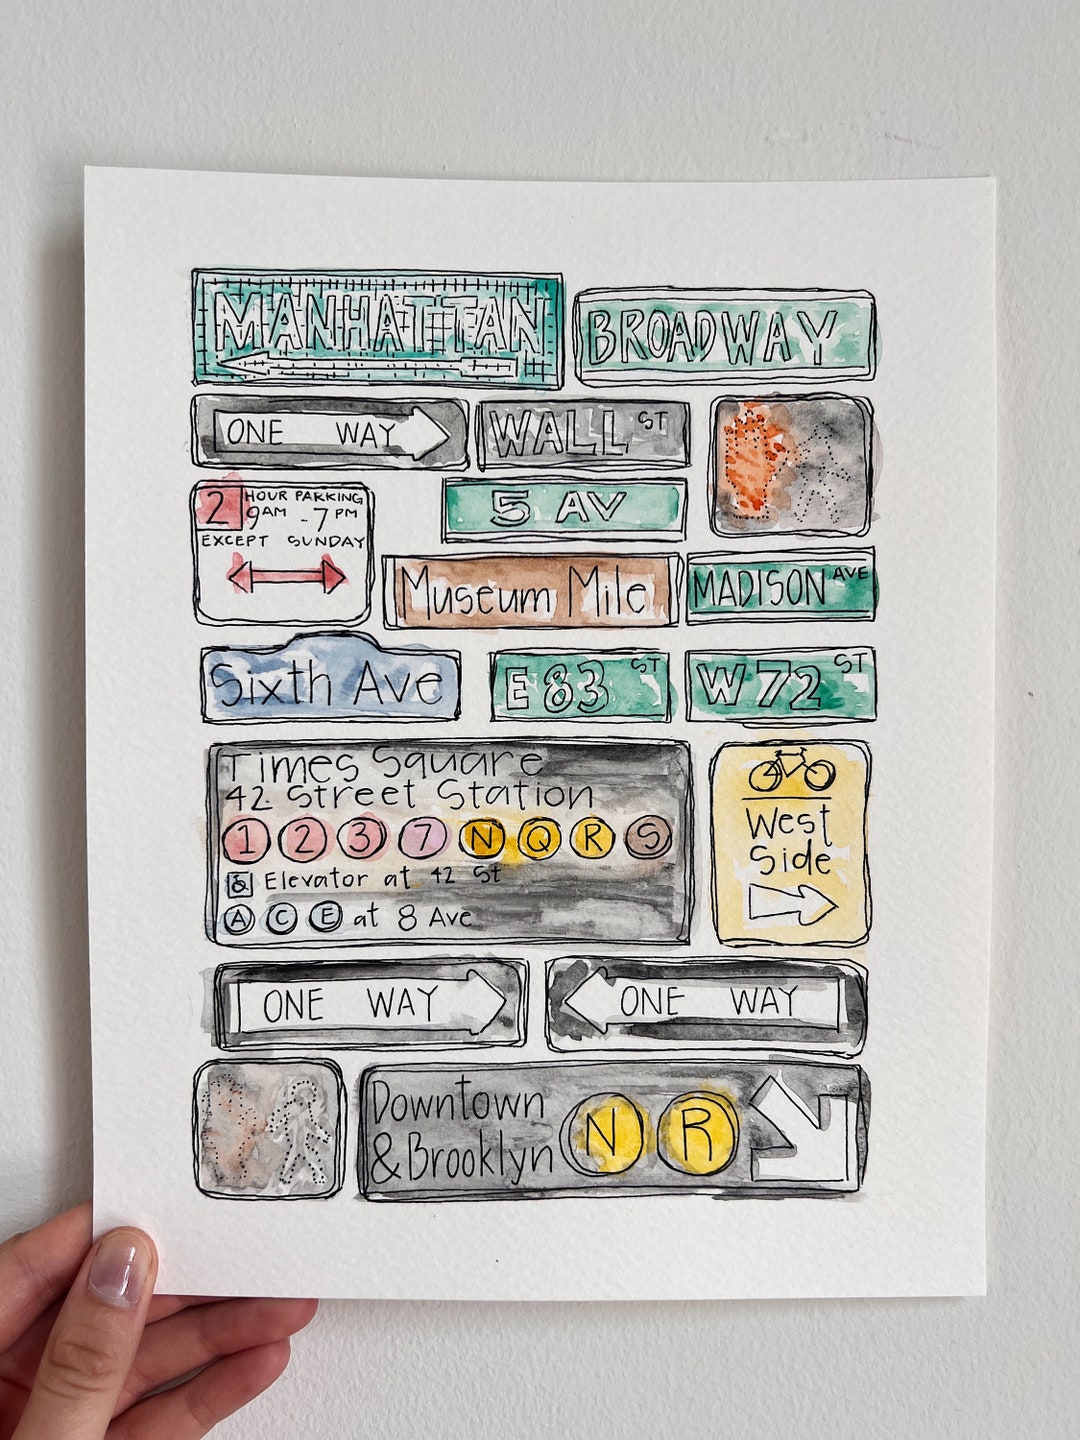 MANHATTAN
BROADWAY
ONE WAY
WALL ST
2 HOUR PARKING
9AM - 7PM
EXCEPT SUNDAY
5 AV
Museum Mile
MADISON AVE
Sixth Ave
E 83 ST
W 72 ST
Times Square
42 Street Station
1 2 3 7 N Q R S
Elevator at 42 St
A C E at 8 Ave
West
Side
ONE WAY
ONE WAY
Downtown
& Brooklyn
N R